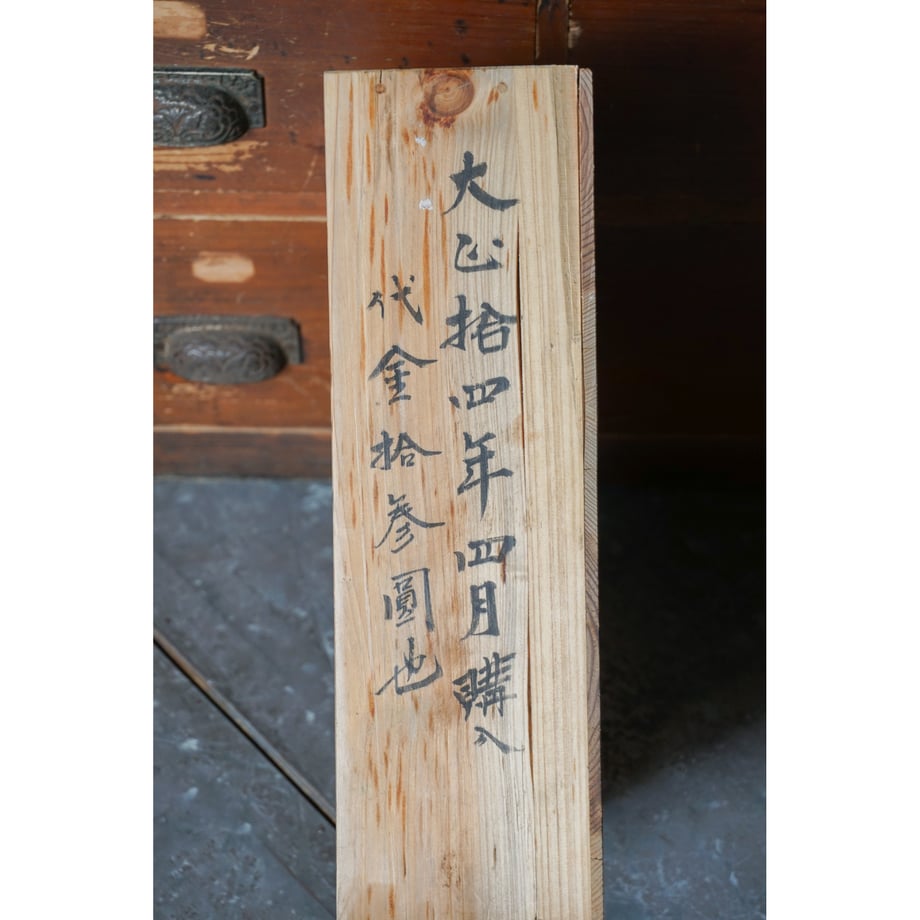 大正拾四年四月購入
代金拾参圓也